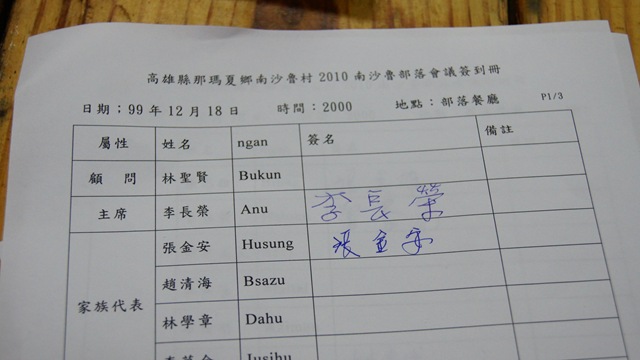 高雄縣那瑪夏鄉南沙魯村 2010 南沙魯部落會議簽到冊
日期;99 年 12 月 18 日 時間:2000 地點:部落餐廳 P1/3
屬性 姓名 ngan 簽名 備註
顧 問 林聖賢 Bukun
主席 李長榮 Anu 李長榮
張金安 Husung 張金安
趙清海 Bsazu
家族代表 林學章 Dahu
Jusihu